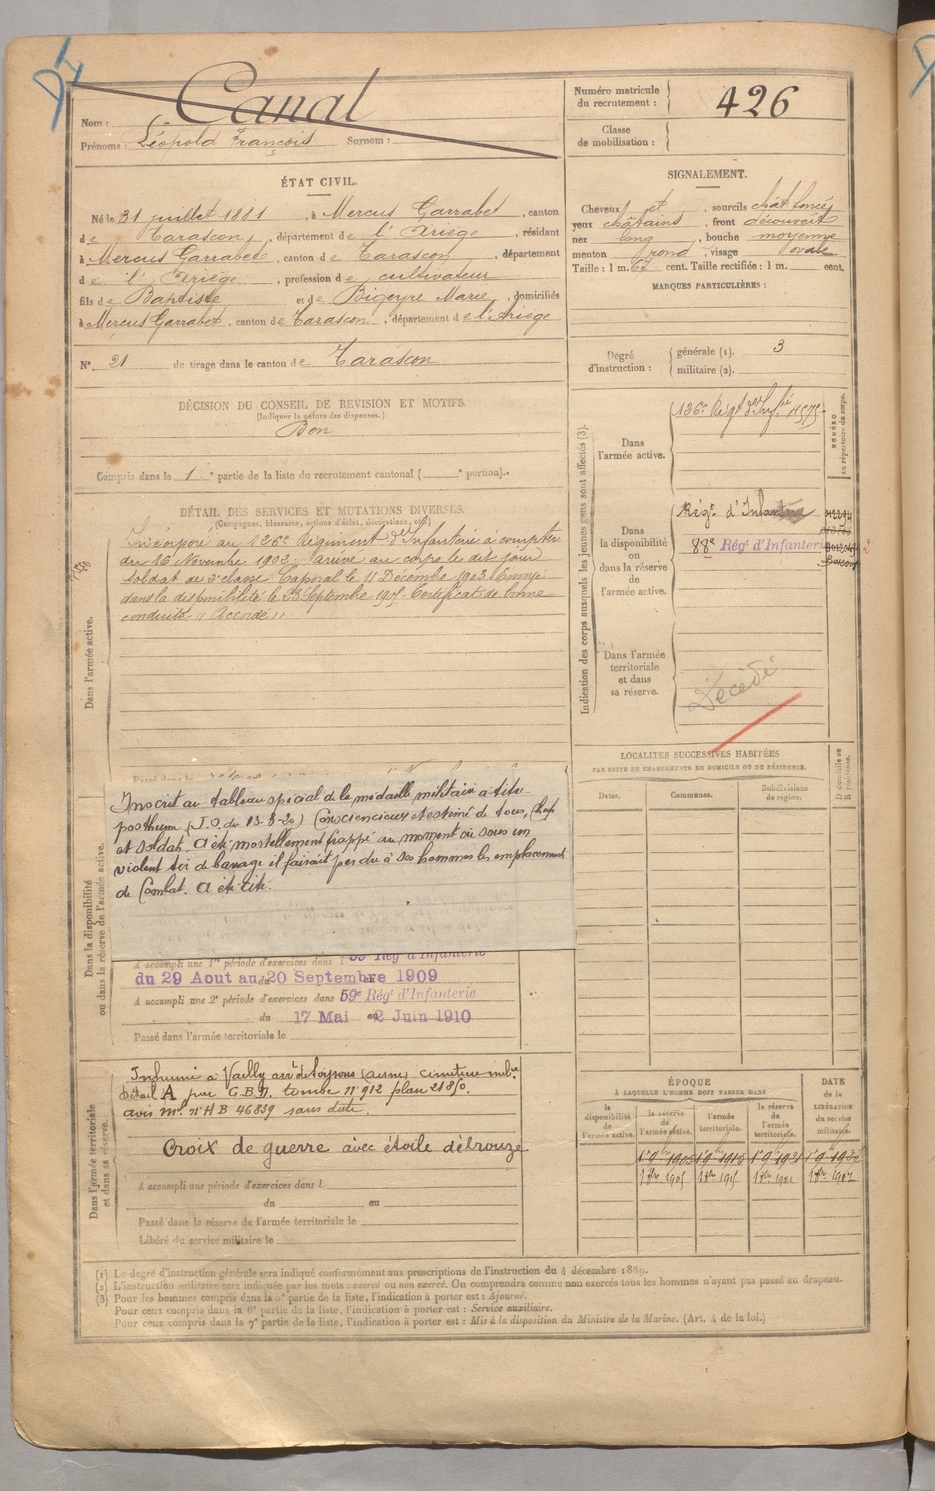 Nom : Canal
Prénoms : Léopold François Surnom :
Numéro matricule
du recrutement : 426
Classe
de mobilisation :
ÉTAT CIVIL.
Né le 31 juillet 1881, à Mercus Garrabet, canton
de Tarascon, département de l'Ariège, résidant
à Mercus Garrabet, canton de Tarascon, département
de l'Ariège, profession de cultivateur
fils de Baptiste et de Bigeyre Marie, domiciliés
à Mercus Garrabet, canton de Tarascon, département de l'Ariège
N° 21 de tirage dans le canton de Tarascon
DÉCISION DU CONSEIL DE REVISION ET MOTIFS.
(Indiquer la nature des dispenses.)
Bon
Compris dans le 1 e partie de la liste du recrutement cantonal ( e portion).
SIGNALEMENT.
Cheveux et, sourcils chat foncé
yeux châtains, front découvert
nez long, bouche moyenne
menton rond, visage ovale
Taille : 1 m. 62 cent. Taille rectifiée : 1 m. cent.
MARQUES PARTICULIÈRES :
Degré
d'instruction :
générale (1). 3
militaire (2).
DÉTAIL DES SERVICES ET MUTATIONS DIVERSES.
(Campagnes, blessures, actions d'éclat, décorations, etc.)
Dans l'armée active.
Incorporé au 126e Régiment d'Infanterie à compter
du 16 Novembre 1902, arrivé au corps le dit jour
Soldat de 2e classe. Caporal le 11 Décembre 1903. Envoyé
dans la disponibilité le 23 Septembre 1905. Certificat de bonne
conduite "Accordé"
Dans la disponibilité
ou dans la réserve de l'armée active.
Passé dans la réserve
Inscrit au tableau spécial de la médaille militaire à titre
posthume (J.O. du 13-8-20) Consciencieux et estimé de tous, chefs
et soldats. A été mortellement frappé au moment où sous un
violent tir de barrage il faisait perdu à ses hommes les emplacements
de Combat. A été cité.
A accompli une 1re période d'exercices dans l 59 Rég d'Infanterie
du 29 Aout au 20 Septembre 1909
A accompli une 2e période d'exercices dans 59e Régt d'Infanterie
du 17 Mai au 2 Juin 1910
Passé dans l'armée territoriale le
Dans l'armée territoriale
et dans sa réserve.
Inhumé à Vailly arrt de Soissons (Aisne) cimetière milre
détail A par G.B.D. tombe n° 912 plan 2180.
avis ml n° HB 46859 sans date.
Croix de guerre avec étoile de bronze
A accompli une période d'exercices dans l
du au
Passé dans la réserve de l'armée territoriale le
Libéré du service militaire le
Indication des corps auxquels les jeunes gens sont affectés (3).
NUMÉRO
au répertoire du corps.
Dans
l'armée active.
126e Régt d'Infrie 4575
Dans
la disponibilité
ou
dans la réserve
de
l'armée active.
Régt d'Infanterie
88e Régt d'Infanterie
Dans l'armée
territoriale
et dans
sa réserve.
Décédé
LOCALITÉS SUCCESSIVES HABITÉES
PAR SUITE DE CHANGEMENTS DE DOMICILE OU DE RÉSIDENCE.
Dates.
Communes.
Subdivisions
de région.
D domicile ou
R résidence.
ÉPOQUE
À LAQUELLE L'HOMME DOIT PASSER DANS
DATE
de la
LIBÉRATION
du service
militaire.
la
disponibilité
de
l'armée active.
la réserve
de
l'armée active.
l'armée
territoriale.
la réserve
de
l'armée
territoriale.
1er 9bre 1905 1er 9bre 1915 1er 9bre 1921
1 8bre 1905 1 8bre 1915 1 8bre 1921 1 8bre 1927
(1) Le degré d'instruction générale sera indiqué conformément aux prescriptions de l'instruction du 4 décembre 1889.
(2) L'instruction militaire sera indiquée par les mots : exercé ou non exercé. On comprendra comme non exercés tous les hommes n'ayant pas passé au drapeau.
(3) Pour les hommes compris dans la 5e partie de la liste, l'indication à porter est : Ajourné.
Pour ceux compris dans la 6e partie de la liste, l'indication à porter est : Service auxiliaire.
Pour ceux compris dans la 7e partie de la liste, l'indication à porter est : Mis à la disposition du Ministre de la Marine. (Art. 4 de la loi.)